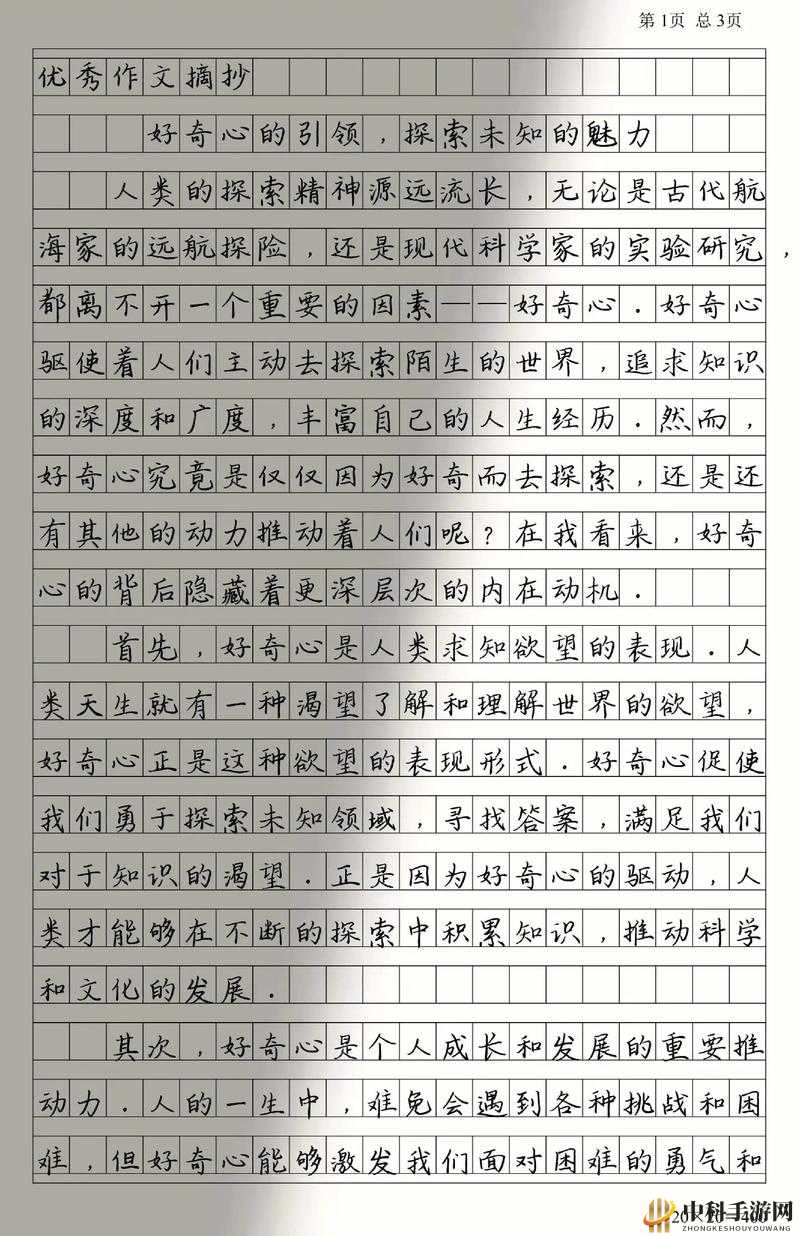 第1页 总3页
优秀作文摘抄
好奇心的引领，探索未知的魅力
人类的探索精神源远流长，无论是古代航
海家的远航探险，还是现代科学家的实验研究，
都离不开一个重要的因素——好奇心．好奇心
驱使着人们主动去探索陌生的世界，追求知识
的深度和广度，丰富自己的人生经历．然而，
好奇心究竟是仅仅因为好奇而去探索，还是还
有其他的动力推动着人们呢？在我看来，好奇
心的背后隐藏着更深层次的内在动机．
首先，好奇心是人类求知欲望的表现．人
类天生就有一种渴望了解和理解世界的欲望，
好奇心正是这种欲望的表现形式．好奇心促使
我们勇于探索未知领域，寻找答案，满足我们
对于知识的渴望．正是因为好奇心的驱动，人
类才能够在不断的探索中积累知识，推动科学
和文化的发展．
其次，好奇心是个人成长和发展的重要推
动力．人的一生中，难免会遇到各种挑战和困
难，但好奇心能够激发我们面对困难的勇气和
20×20＝400
中科手游网
ZHONGKESHOUYOUWANG